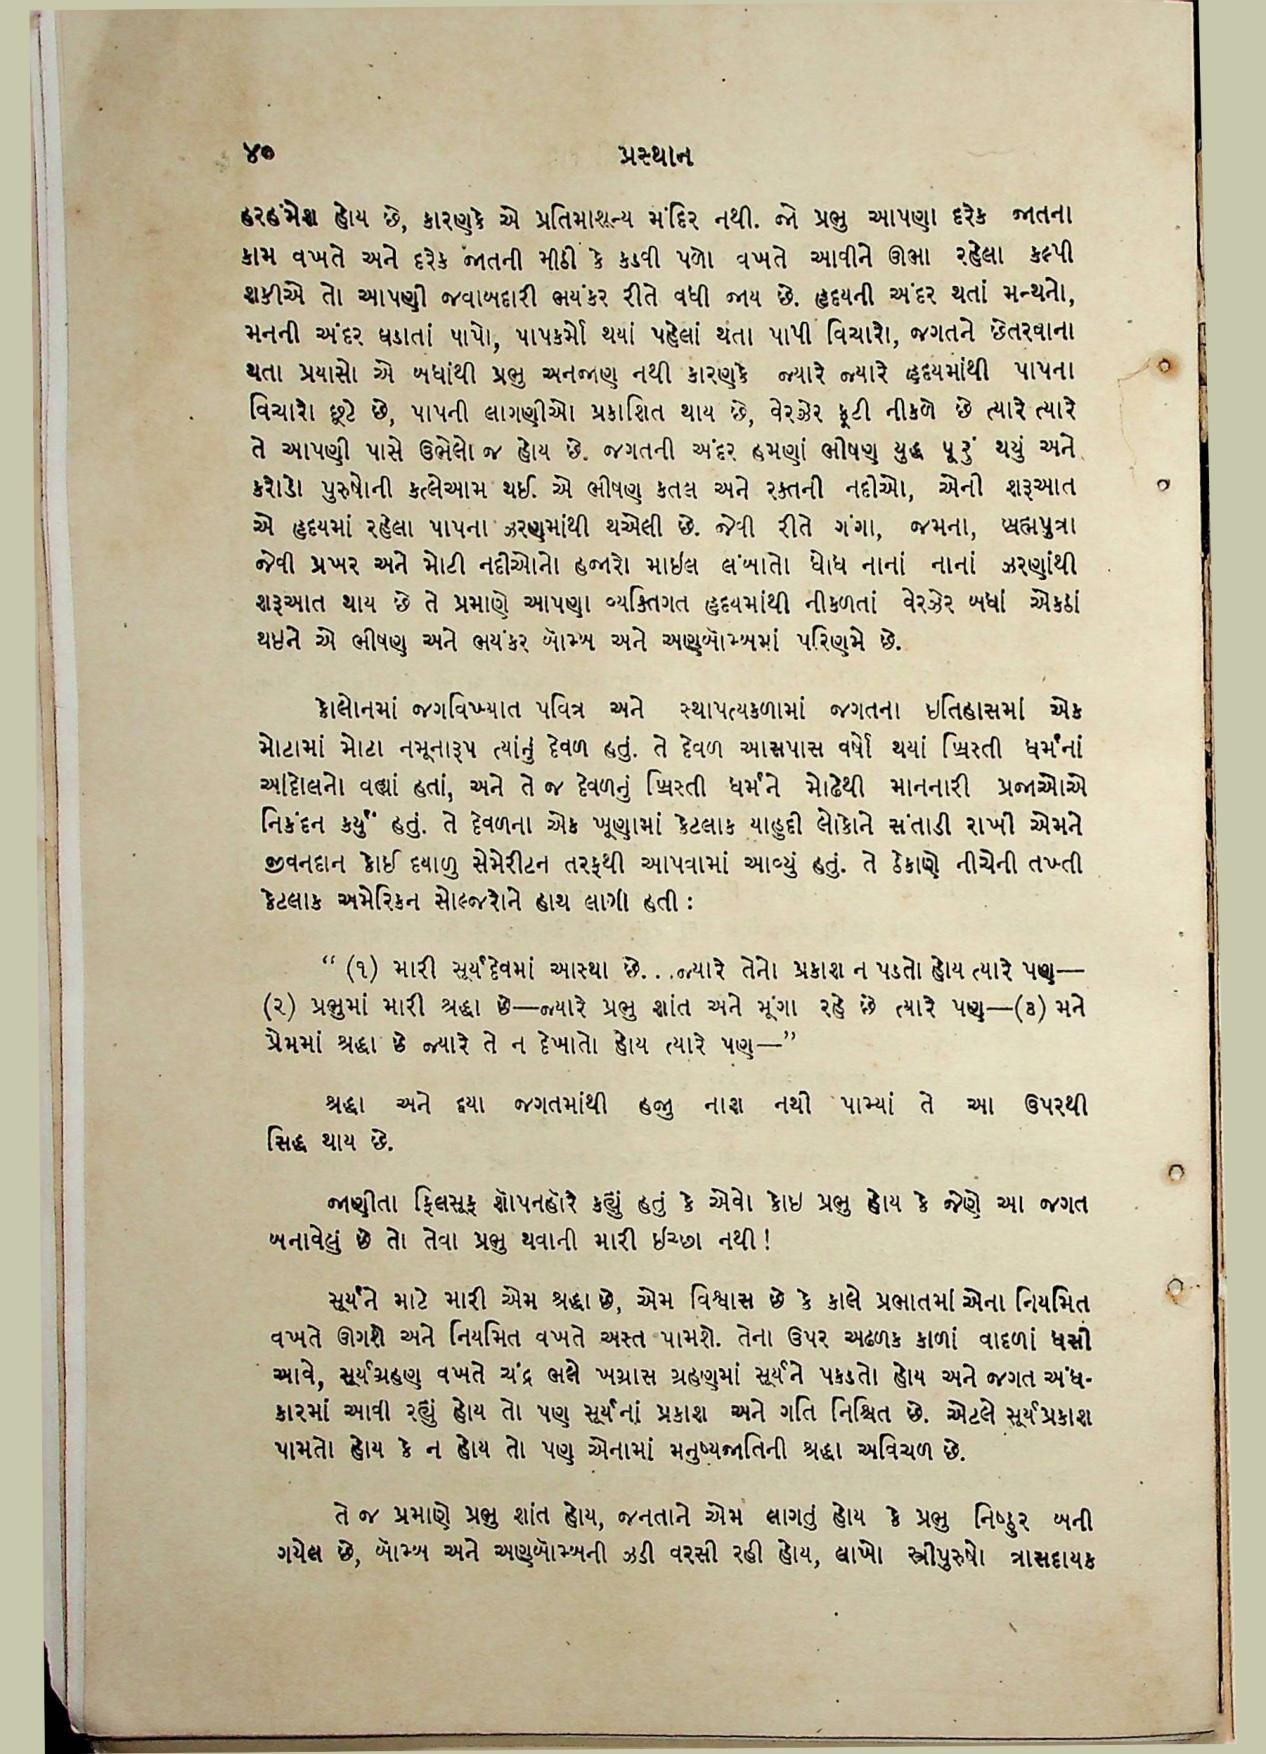 ૪૦
પ્રસ્થાન
હરહંમેશ હોય છે, કારણકે એ પ્રતિમાશૂન્ય મંદિર નથી. જો પ્રભુ આપણા દરેક જાતના
કામ વખતે અને દરેક જાતની મીઠી કે કડવી પળો વખતે આવીને ઊભા રહેલા કલ્પી
શકીએ તો આપણી જવાબદારી ભયંકર રીતે વધી જાય છે. હૃદયની અંદર થતાં મન્થનો,
મનની અંદર ઘડાતાં પાપો, પાપકર્મો થયાં પહેલાં થતા પાપી વિચારો, જગતને છેતરવાના
થતા પ્રયાસો એ બધાંથી પ્રભુ અનજાણ નથી કારણકે જ્યારે જ્યારે હૃદયમાંથી પાપના
વિચારો છૂટે છે, પાપની લાગણીઓ પ્રકાશિત થાય છે, વેરઝેર ફૂટી નીકળે છે ત્યારે ત્યારે
તે આપણી પાસે ઉભેલો જ હોય છે. જગતની અંદર હમણાં ભીષણ યુદ્ધ પૂરું થયું અને
કરોડો પુરુષોની કત્લેઆમ થઈ. એ ભીષણ કતલ અને રક્તની નદીઓ, એની શરૂઆત
એ હૃદયમાં રહેલા પાપના ઝરણમાંથી થએલી છે. જેવી રીતે ગંગા, જમના, બ્રહ્મપુત્રા
જેવી પ્રખર અને મોટી નદીઓનો હજારો માઇલ લંબાતો ધોધ નાનાં નાનાં ઝરણાંથી
શરૂઆત થાય છે તે પ્રમાણે આપણા વ્યક્તિગત હૃદયમાંથી નીકળતાં વેરઝેર બધાં એકઠાં
થઇને એ ભીષણ અને ભયંકર બૉમ્બ અને અણુબૉમ્બમાં પરિણમે છે.
કોલોનમાં જગવિખ્યાત પવિત્ર અને સ્થાપત્યકળામાં જગતના ઇતિહાસમાં એક
મોટામાં મોટા નમૂનારૂપ ત્યાંનું દેવળ હતું. તે દેવળ આસપાસ વર્ષો થયાં ખ્રિસ્તી ધર્મનાં
આંદોલનો વહ્યાં હતાં, અને તે જ દેવળનું ખ્રિસ્તી ધર્મને મોઢેથી માનનારી પ્રજાઓએ
નિકંદન કર્યું હતું. તે દેવળના એક ખૂણામાં કેટલાક યાહુદી લોકોને સંતાડી રાખી એમને
જીવનદાન કોઈ દયાળુ સેમેરીટન તરફથી આપવામાં આવ્યું હતું. તે ઠેકાણે નીચેની તખ્તી
કેટલાક અમેરિકન સોલ્જરોને હાથ લાગી હતી :
“ (૧) મારી સૂર્યદેવમાં આસ્થા છે...જ્યારે તેનો પ્રકાશ ન પડતો હોય ત્યારે પણ—
(૨) પ્રભુમાં મારી શ્રદ્ધા છે—જ્યારે પ્રભુ શાંત અને મૂંગા રહે છે ત્યારે પણ—(૩) મને
પ્રેમમાં શ્રદ્ધા છે જ્યારે તે ન દેખાતો હોય ત્યારે પણ—”
શ્રદ્ધા અને દયા જગતમાંથી હજી નાશ નથી પામ્યાં તે આ ઉપરથી
સિદ્ધ થાય છે.
જાણીતા ફિલસૂફ શૉપનહૉરે કહ્યું હતું કે એવો કોઇ પ્રભુ હોય કે જેણે આ જગત
બનાવેલું છે તો તેવા પ્રભુ થવાની મારી ઈચ્છા નથી !
સૂર્યને માટે મારી એમ શ્રદ્ધા છે, એમ વિશ્વાસ છે કે કાલે પ્રભાતમાં એના નિયમિત
વખતે ઊગશે અને નિયમિત વખતે અસ્ત પામશે. તેના ઉપર અઢળક કાળાં વાદળાં ધસી
આવે, સૂર્યગ્રહણ વખતે ચંદ્ર ભલે ખગ્રાસ ગ્રહણમાં સૂર્યને પકડતો હોય અને જગત અંધ-
કારમાં આવી રહ્યું હોય તો પણ સૂર્યનાં પ્રકાશ અને ગતિ નિશ્ચિત છે. એટલે સૂર્યપ્રકાશ
પામતો હોય કે ન હોય તો પણ એનામાં મનુષ્યજાતિની શ્રદ્ધા અવિચળ છે.
તે જ પ્રમાણે પ્રભુ શાંત હોય, જનતાને એમ લાગતું હોય કે પ્રભુ નિષ્ઠુર બની
ગયેલ છે, બૉમ્બ અને અણુબૉમ્બની ઝડી વરસી રહી હોય, લાખો સ્ત્રીપુરુષો ત્રાસદાયક